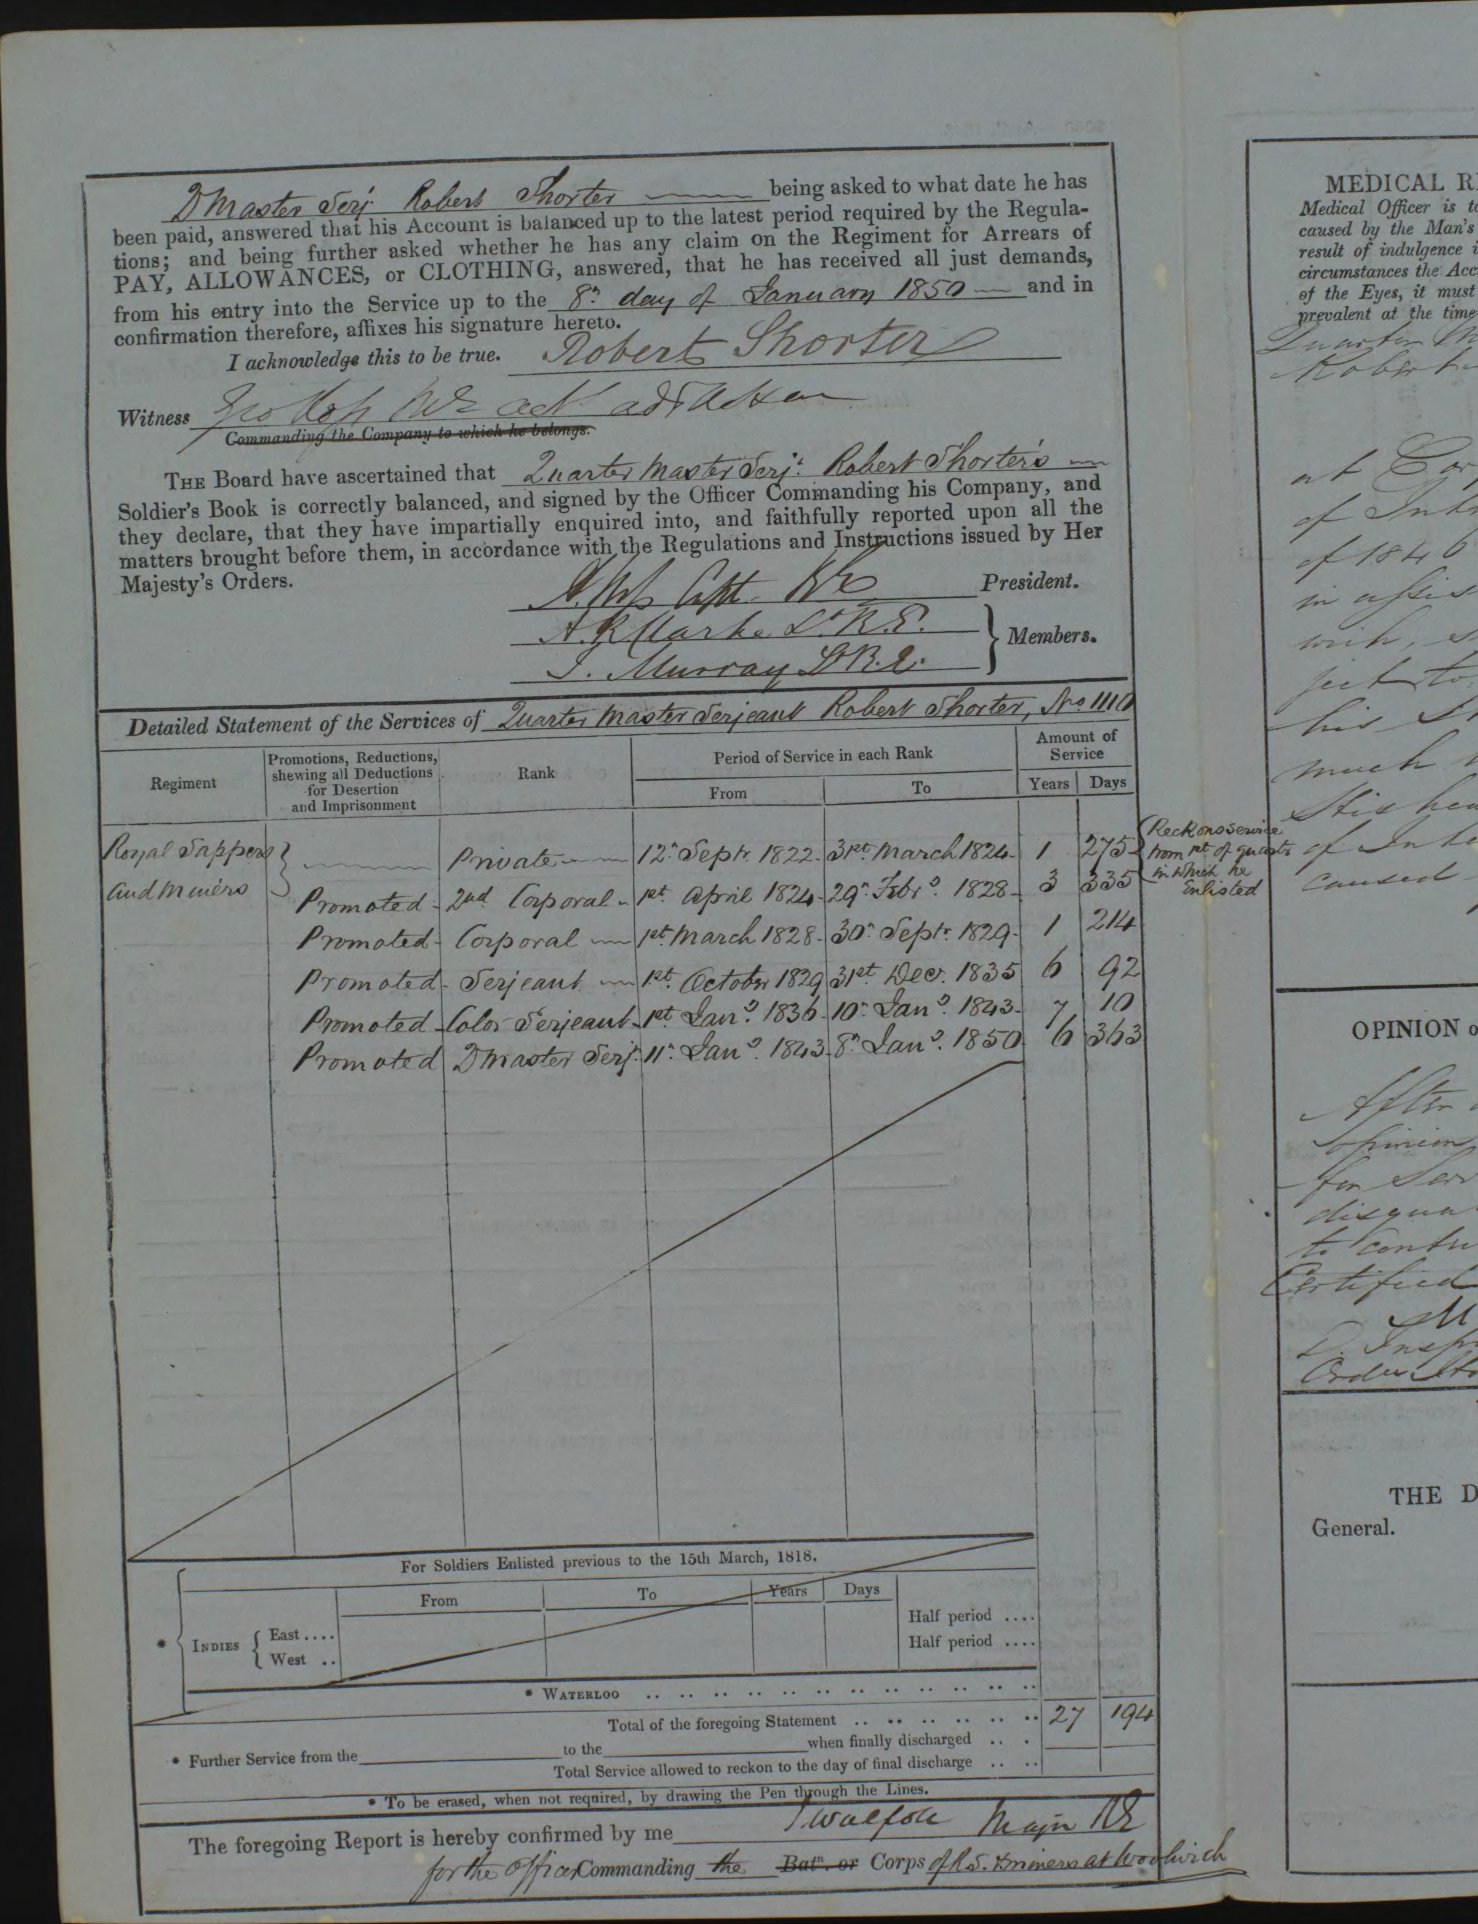 QMaster Serj. Robert Shorter being asked to what date he has
been paid, answered that his Account is balanced up to the latest period required by the Regula-
tions; and being further asked whether he has any claim on the Regiment for Arrears of
PAY, ALLOWANCES, or CLOTHING, answered, that he has received all just demands,
from his entry into the Service up to the 8th day of January 1850 and in
confirmation therefore, affixes his signature hereto.
I acknowledge this to be true. Robert Shorter
Witness
Commanding the Company to which he belongs.
THE Board have ascertained that Quarter Master Serjt. Robert Shorter's
Soldier's Book is correctly balanced, and signed by the Officer Commanding his Company, and
they declare, that they have impartially enquired into, and faithfully reported upon all the
matters brought before them, in accordance with the Regulations and Instructions issued by Her
Majesty's Orders.
Capt. RE President.
A. R. Clarke Lt. R.E.
Members.
J. Murray Lt R.E.
Detailed Statement of the Services of Quarter Master Serjeant Robert Shorter, No 1110
Regiment | Promotions, Reductions, shewing all Deductions for Desertion and Imprisonment | Rank | Period of Service in each Rank | Amount of Service
From | To | Years | Days
Royal Sappers Private 12th Septr. 1822 31st March 1824 1 275 Reckons service from 1st of quarter in which he Enlisted
and Miners Promoted 2nd Corporal 1st April 1824 29th Feby. 1828 3 335
Promoted Corporal 1st March 1828 30th Septr. 1829 1 214
Promoted Serjeant 1st October 1829 31st Decr. 1835 6 92
Promoted Color Serjeant 1st Jany. 1836 10th Jany. 1843 7 10
Promoted QMaster Serj. 11th Jany. 1843 8th Jany. 1850 6 363
For Soldiers Enlisted previous to the 15th March, 1818.
From | To | Years | Days
* INDIES East.... Half period ....
West .. Half period ....
* WATERLOO
Total of the foregoing Statement 27 194
* Further Service from the to the when finally discharged
Total Service allowed to reckon to the day of final discharge
* To be erased, when not required, by drawing the Pen through the Lines.
The foregoing Report is hereby confirmed by me J Walpole Major RE
for the Officer Commanding the Batn. or Corps of R. S. & Miners at Woolwich
MEDICAL R
Medical Officer is to
caused by the Man's
result of indulgence i
circumstances the Acc
of the Eyes, it must
prevalent at the time
Quarter M
Robert
at Cor
of Int
of 1846
in assis
wich, s
ject to
his
much
His hea
of Inte
caused
OPINION o
After
opinion
for Ser
disqua
to contri
Certified
D. Insp
THE D
General.